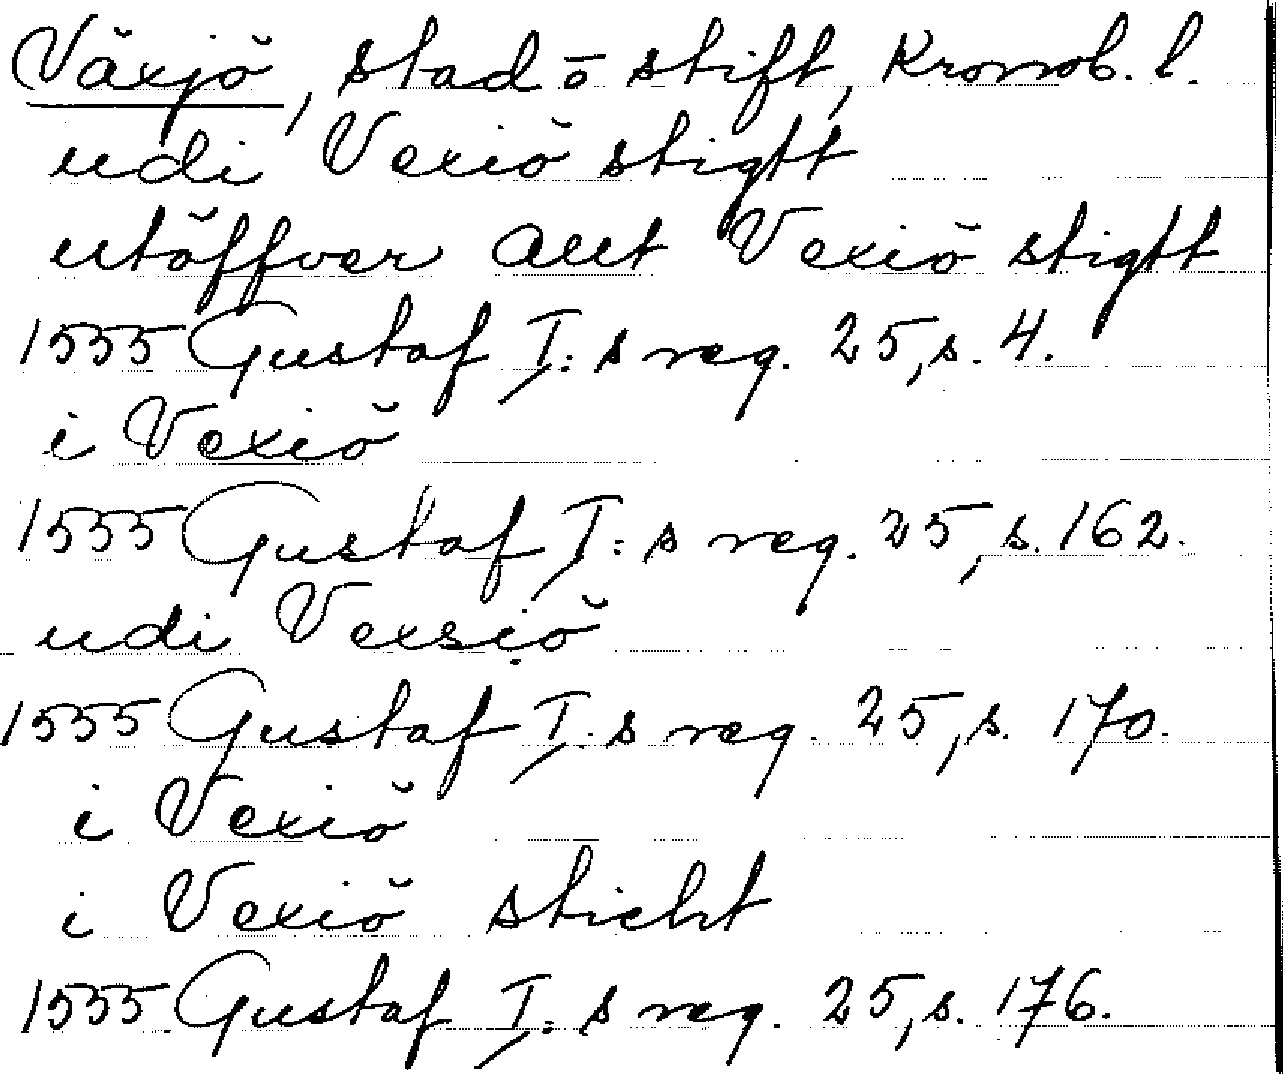 Växjö, stad o stift, Kronob. l.
udi Vexiö stigtt
utöffver allt Vexiö stigtt
1555 Gustaf I:s reg. 25, s. 4.
i Vexiö
1555 Gustaf I:s reg. 25, s. 162.
udi Vexsiö
1555 Gustaf I:s reg. 25, s. 170.
i Vexiö
i Vexiö sticht
1555 Gustaf I:s reg. 25, s. 176.